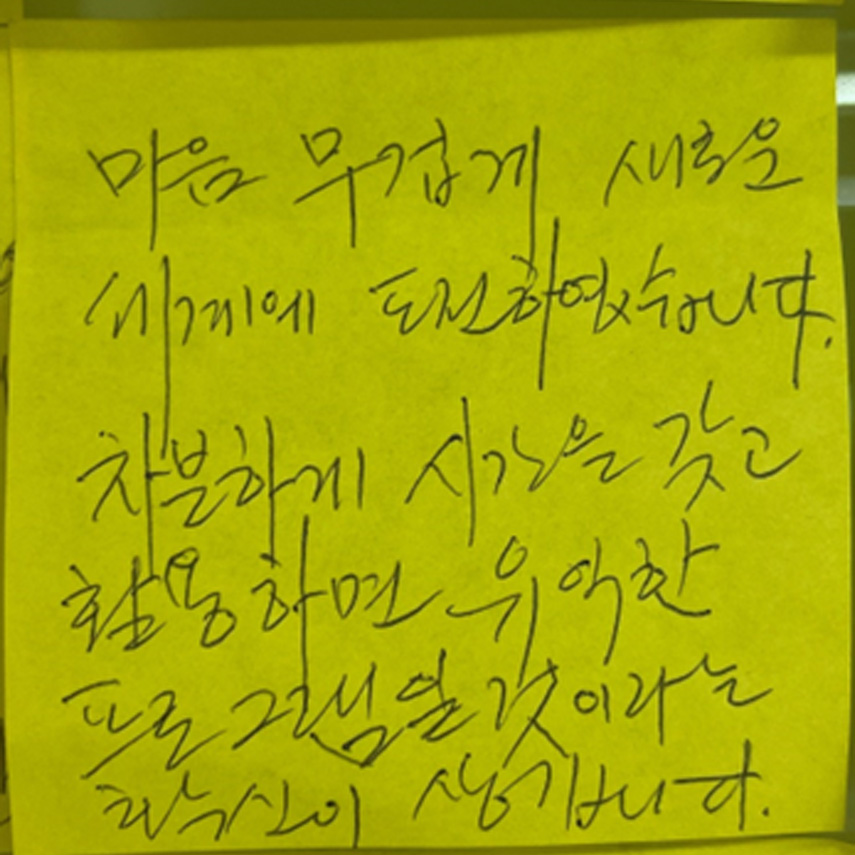 마음 무겁게 새로운
세계에 도전하였습니다.
차분하게 시간을 갖고
활동하면 유익한
프로그램일 것이라는
확신이 생깁니다.